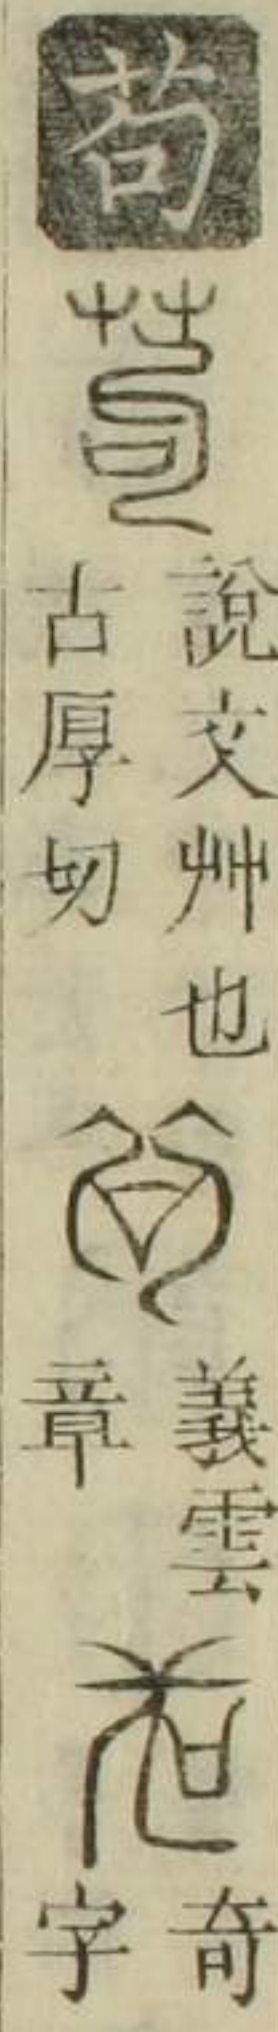 苟
說文艸也
古厚切
義雲
章
奇
字